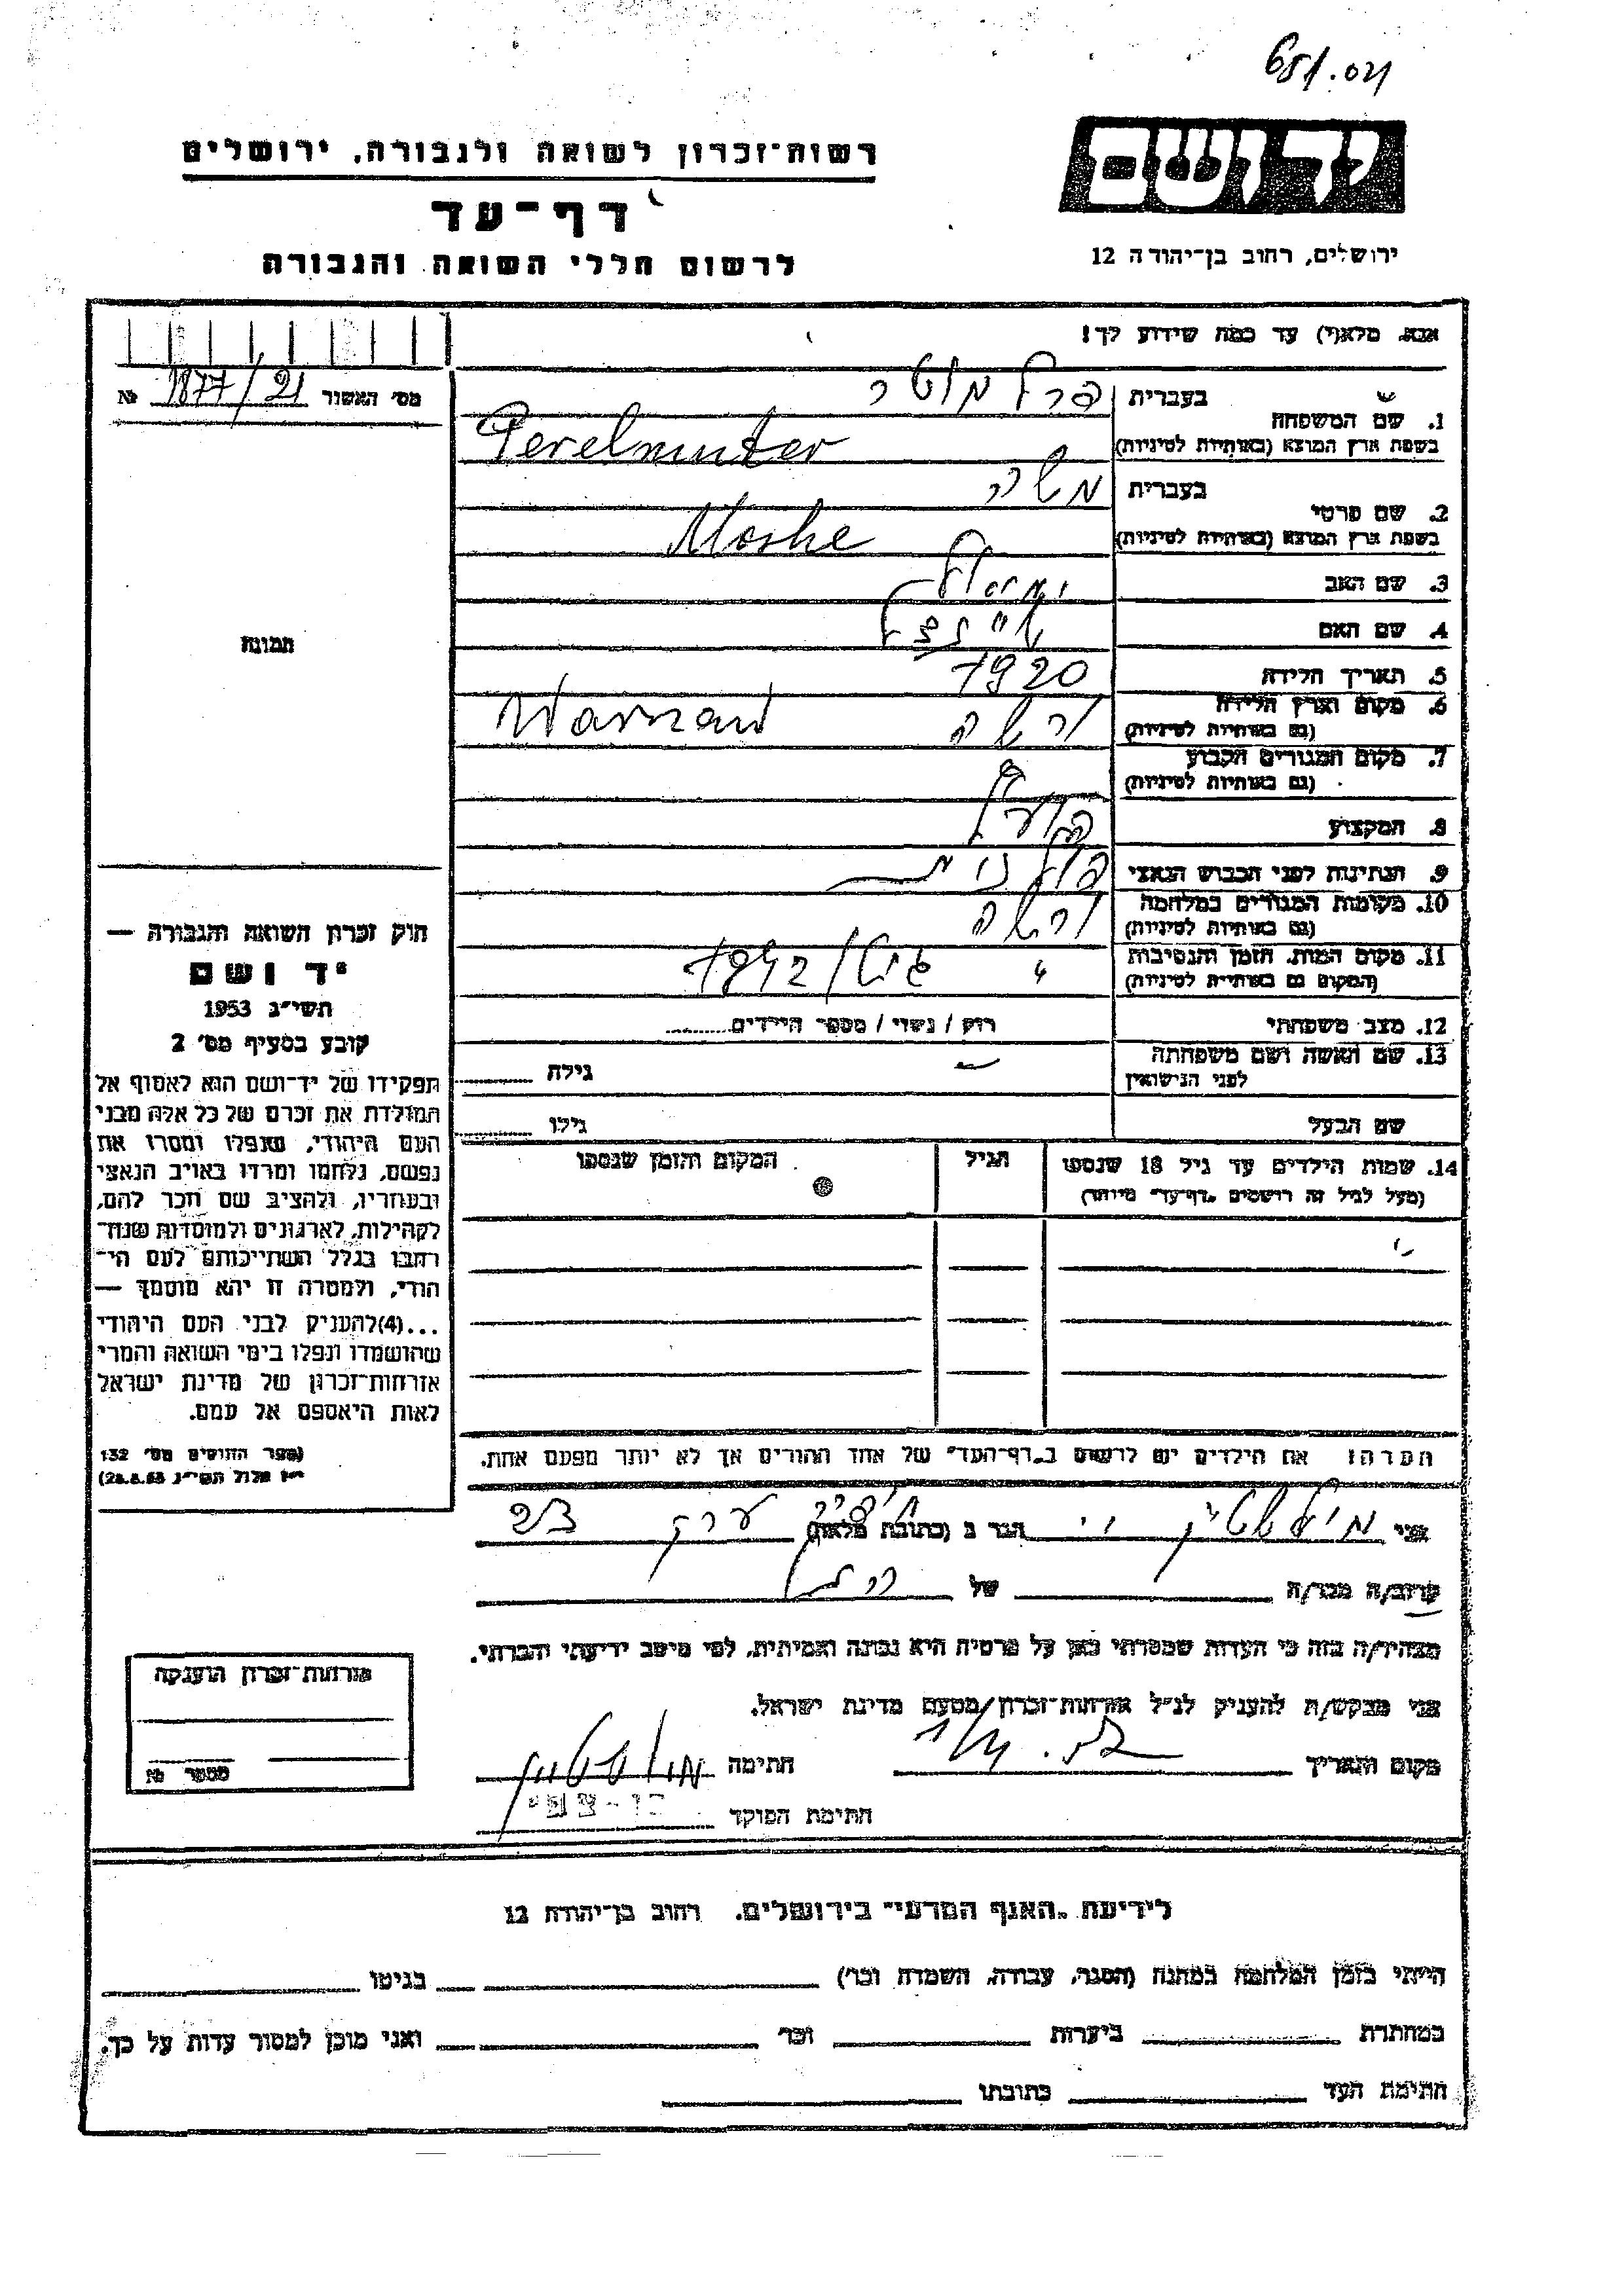 681.04
ידושם
רשות־זכרון לשואה ולגבורה, ירושלים
דף־עד
לרשום חללי השואה והגבורה
ירושלים, רחוב בן־יהודה 12
אנא, מלא(י) עד כמה שידוע לך!
מס׳ האשור 1877/21 №
1. שם המשפחה
בעברית פרלמוטר
בשפת ארץ המוצא (באותיות לטיניות) Perelmuter
2. שם פרטי
בעברית משה
בשפת ארץ המוצא (באותיות לטיניות) Moshe
3. שם האב
4. שם האם
5. תאריך הלידה 1920
6. מקום וארץ הלידה
(גם באותיות לטיניות) ורשה Warszaw
7. מקום המגורים הקבוע
(גם באותיות לטיניות)
8. המקצוע פועל
9. הנתינות לפני הכבוש הנאצי פולנית
10. מקומות המגורים במלחמה
(גם באותיות לטיניות) ורשה
11. מקום המות, הזמן והנסיבות
(המקום גם באותיות לטיניות) " גיטו 1942
12. מצב משפחתי רווק / נשוי / מספר הילדים
13. שם האשה ושם משפחתה
לפני הנישואין גילה
שם הבעל גילו
14. שמות הילדים עד גיל 18 שנספו הגיל המקום והזמן שנספו
(מעל לגיל זה רושמים "דף־עד" מיוחד)
תמונה
חוק זכרון השואה והגבורה —
יד ושם
תשי״ג 1953
קובע בסעיף מס׳ 2
תפקידו של יד־ושם הוא לאסוף אל
המולדת את זכרם של כל אלה מבני
העם היהודי, שנפלו ומסרו את
נפשם, נלחמו ומרדו באויב הנאצי
ובעוזריו, ולהציב שם וזכר להם,
לקהילות, לארגונים ולמוסדות שנח־
רבו בגלל השתייכותם לעם הי־
הודי, ולמטרה זו יהא מוסמך —
...(4)להעניק לבני העם היהודי
שהושמדו ונפלו בימי השואה והמרי
אזרחות־זכרון של מדינת ישראל
לאות היאספם אל עמם.
(ספר החוקים מס׳ 132
י״ז אלול תשי״ג 28.8.53)
הערה: את הילדים יש לרשום ב"דף־העד" של אחד ההורים אך לא יותר מפעם אחת.
אני הגר ב (כתובת מלאה)
קרוב/ה מכר/ה של
מצהיר/ה בזה כי העדות שמסרתי כאן על פרטיה היא נכונה ואמיתית, לפי מיטב ידיעתי והכרתי.
אני מבקש/ת להעניק לנ״ל אזרחות־זכרון/מטעם מדינת ישראל.
מקום ותאריך חתימה
חתימת הפוקד
אזרחות־זכרון הוענקה
מספר №
לידיעת "האגף המדעי" בירושלים, רחוב בן־יהודה 12
הייתי בזמן המלחמה במחנה (הסגר, עבודה, השמדה וכו׳) בגיטו
במחתרת ביערות וכו׳ ואני מוכן למסור עדות על כך.
חתימת העד כתובתו